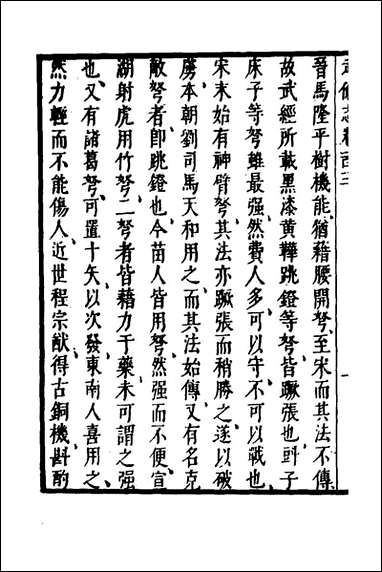 武備志卷百三
一
晉馬隆平樹機能、猶藉腰開弩、至宋而其法不傳、
故武經所載黑漆黃鞾跳鐙等弩、皆蹶張也、㪷子
床子等弩雖最强、然費人多、可以守不可以戰也、
宋末始有神臂弩、其法亦蹶張而稍勝之、遂以破
虜、本朝劉司馬天和用之、而其法始傳、又有名克
敵弩者、卽跳鐙也、今苗人皆用弩、然强而不便、宣
湖射虎用竹弩、二弩者皆藉力于藥、未可謂之强
也、又有諸葛弩、可置十矢、以次發、東南人喜用之、
然力輕而不能傷人、近世程宗猷得古銅機、斟酌